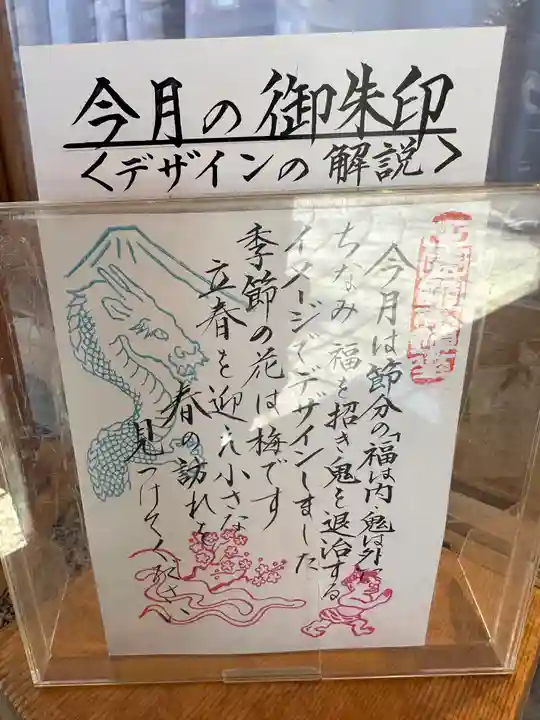 今月の御朱印
<デザインの解説>
今月は節分の「福は内・鬼は外」に
ちなみ 福を招き鬼を退治する
イメージでデザインしました
季節の花は梅です
立春を迎え小さな
春の訪れを
見つけてください